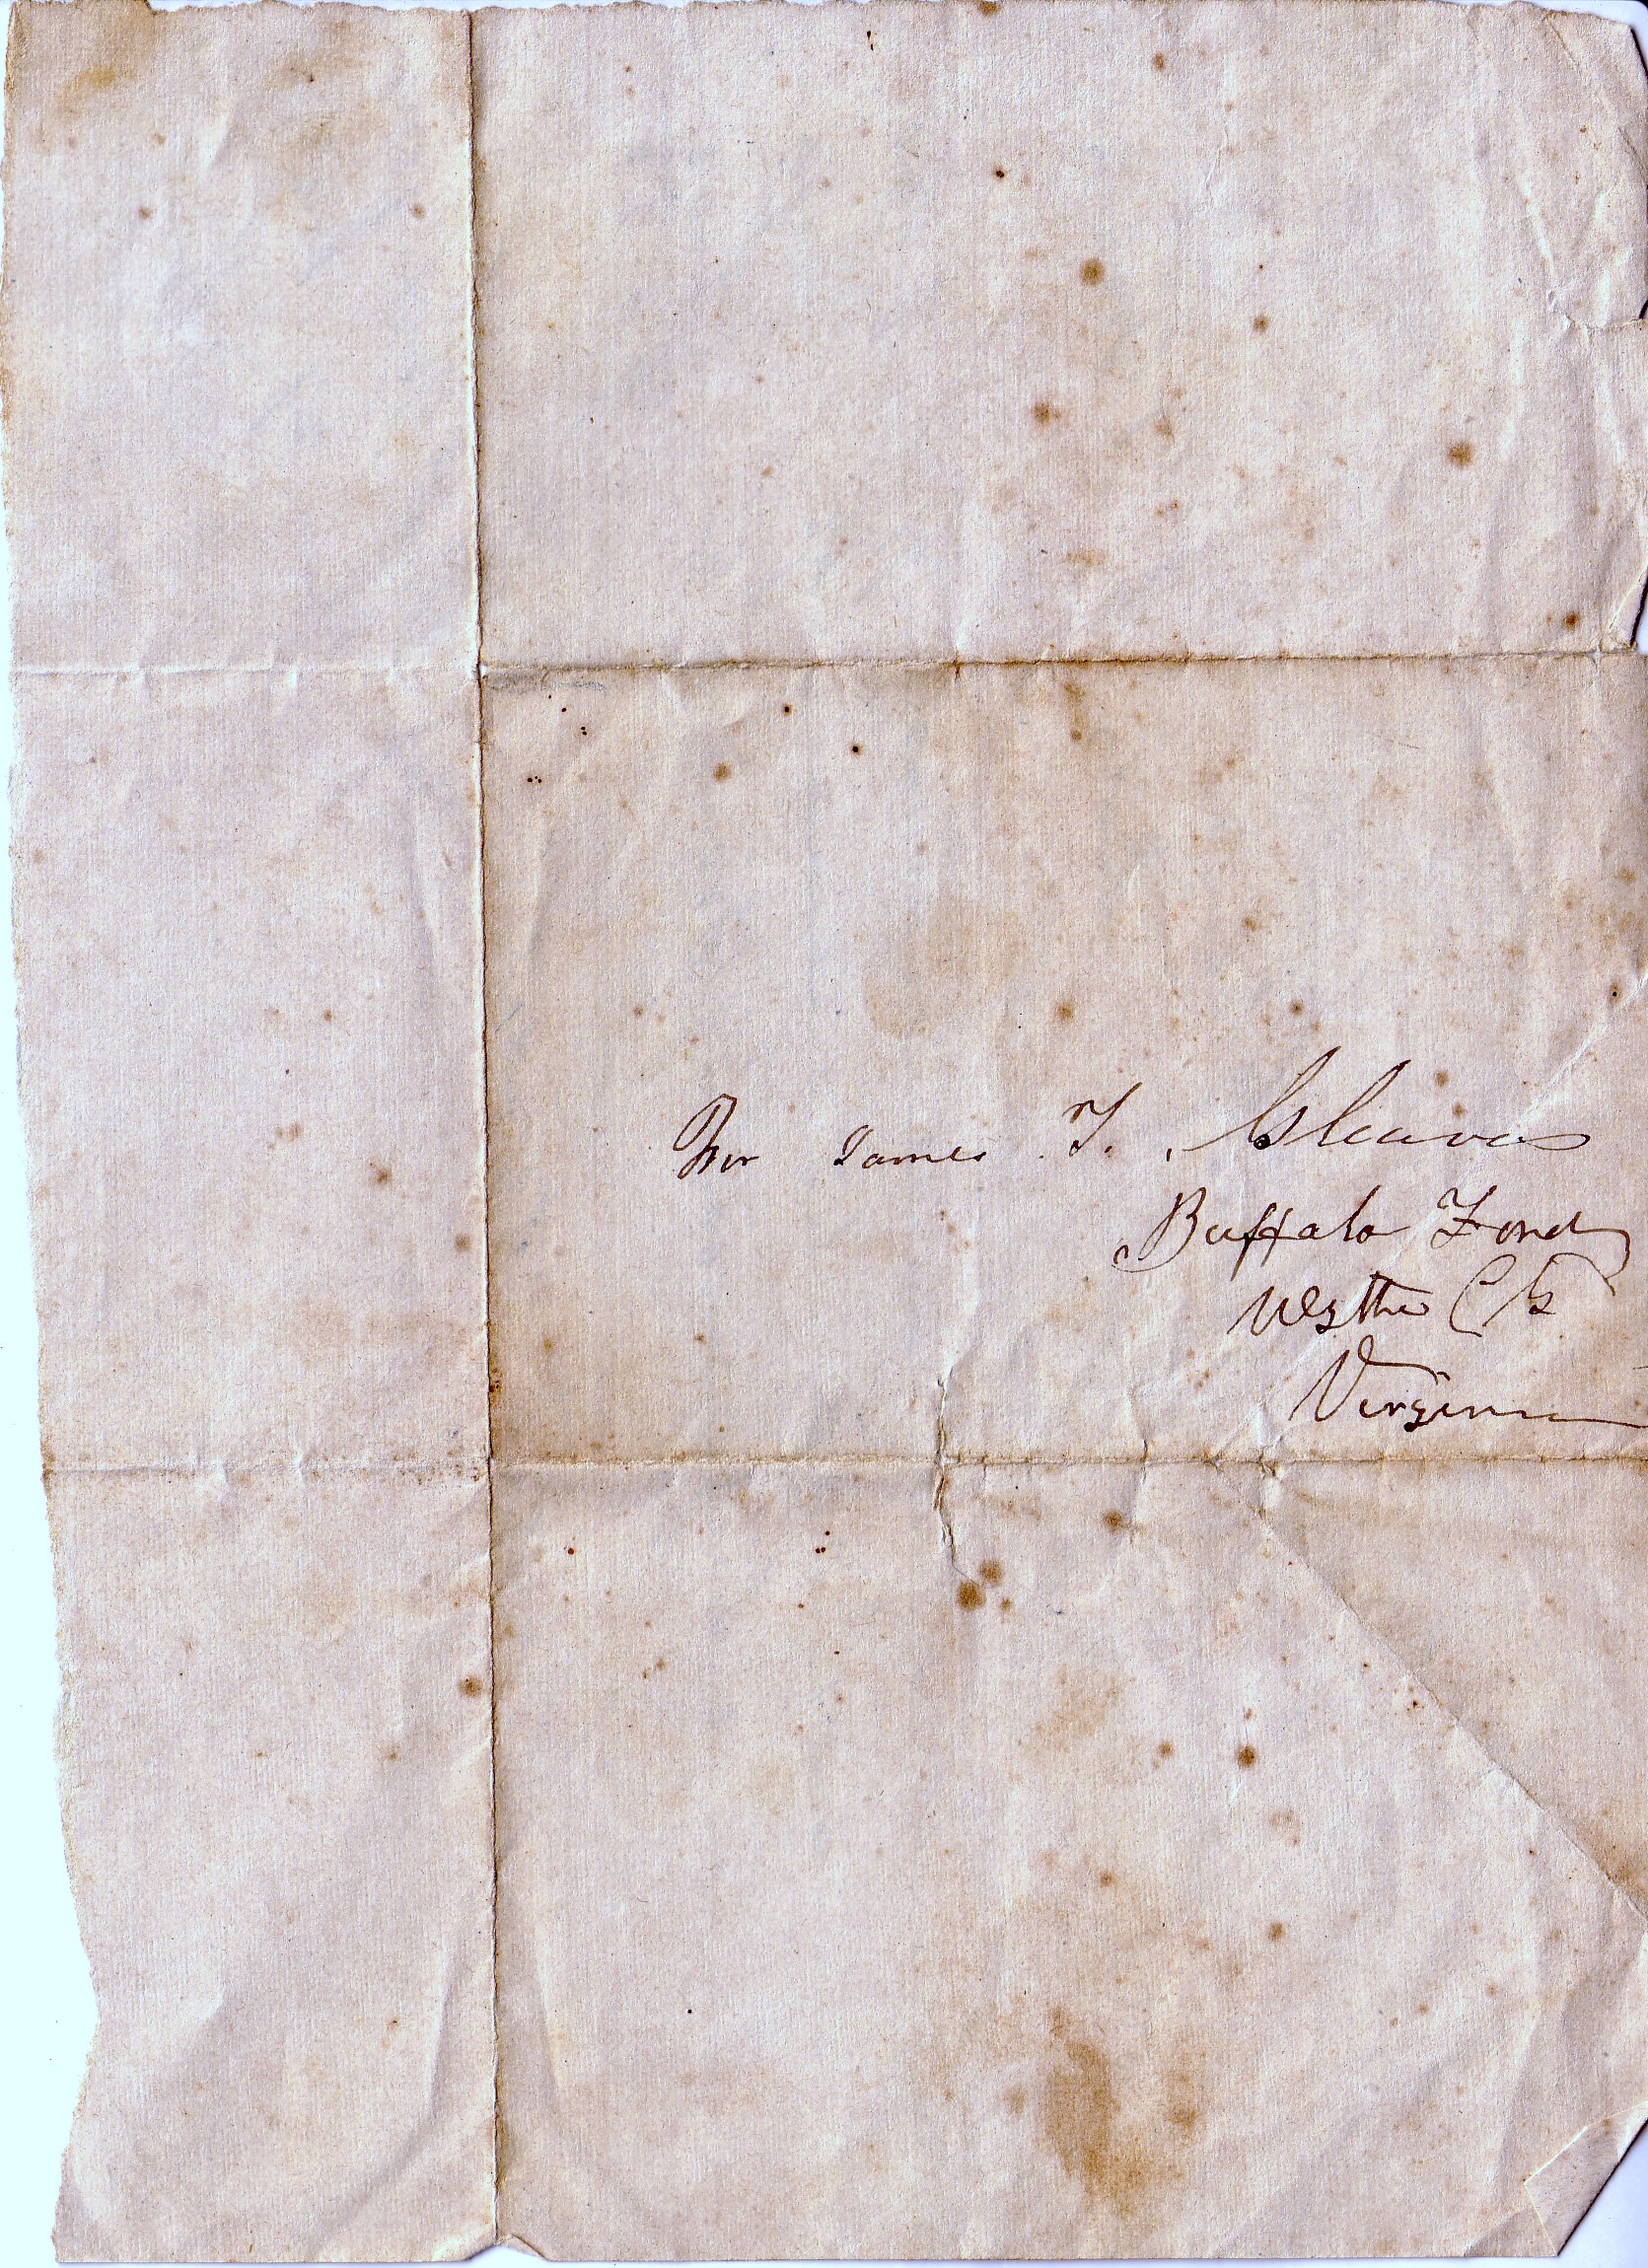 Mr James T. Gleaves
Buffalo Ford
Wythe Cty
Virginia